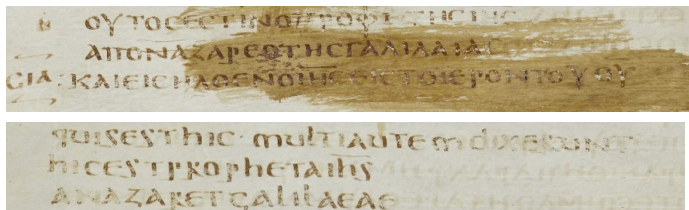 ΟΥΤΟCΕCΤΙΝΟΠΡΟΦΗΤΗCΙΗC
ΑΠΟΝΑΖΑΡΕΘΤΗCΓΑΛΙΛΑΙΑC
CIA: ΚΑΙΕΙCΗΛΘΕΝΟΙΗCΕΙCΤΟΙΕΡΟΝΤΟΥΘΥ
quisesthic · multiautemdixerunt
hicestprophetaihs
anazaretgalilaeae